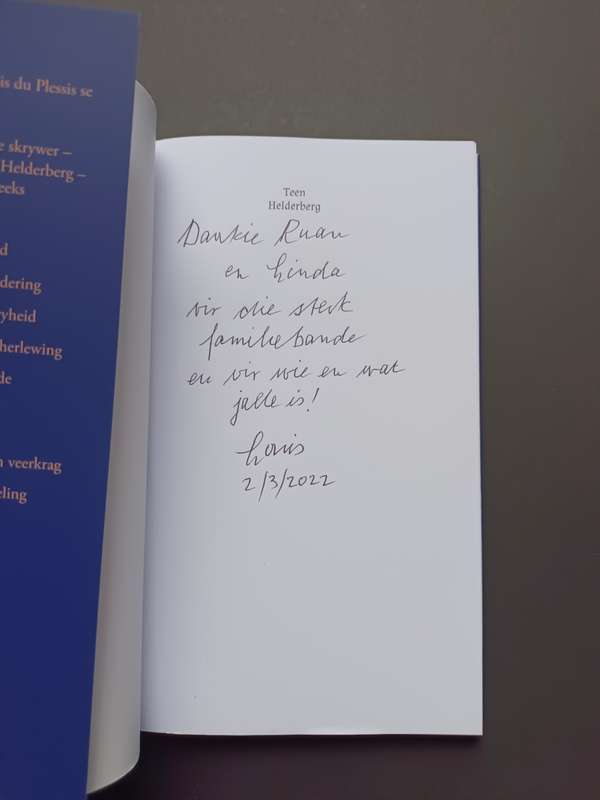 is du Plessis se
e skrywer –
Helderberg –
eeks
d
dering
ryheid
herlewing
de
n veerkrag
eling
Teen
Helderberg
Dankie Ruan
en Linda
vir die sterk
familiebande
en vir wie en wat
julle is!
Louis
2/3/2022